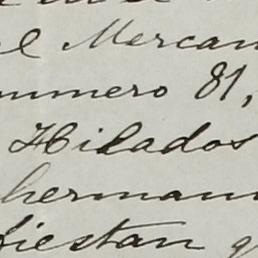 el Mercan
numero 81,
Hilados
herman
fiestan q